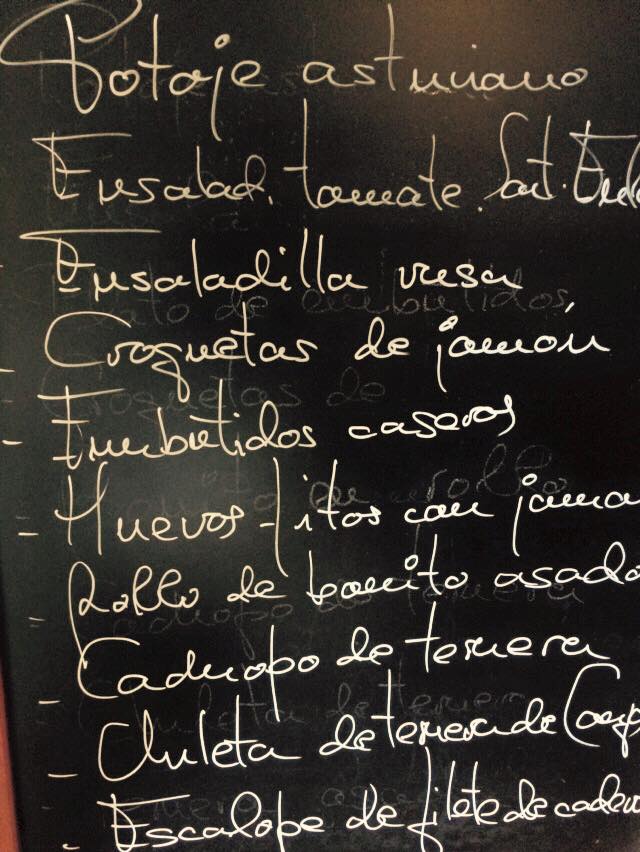 Potaje asturiano
Ensalad. tomate.
Ensaladilla rusa
Croquetas de jamón
- Embutidos caseros
- Huevos fritos con jamo
- Rollo de bonito asado
- Cachopo de ternera
- Chuleta de ternera de
- Escalope de filete de cader